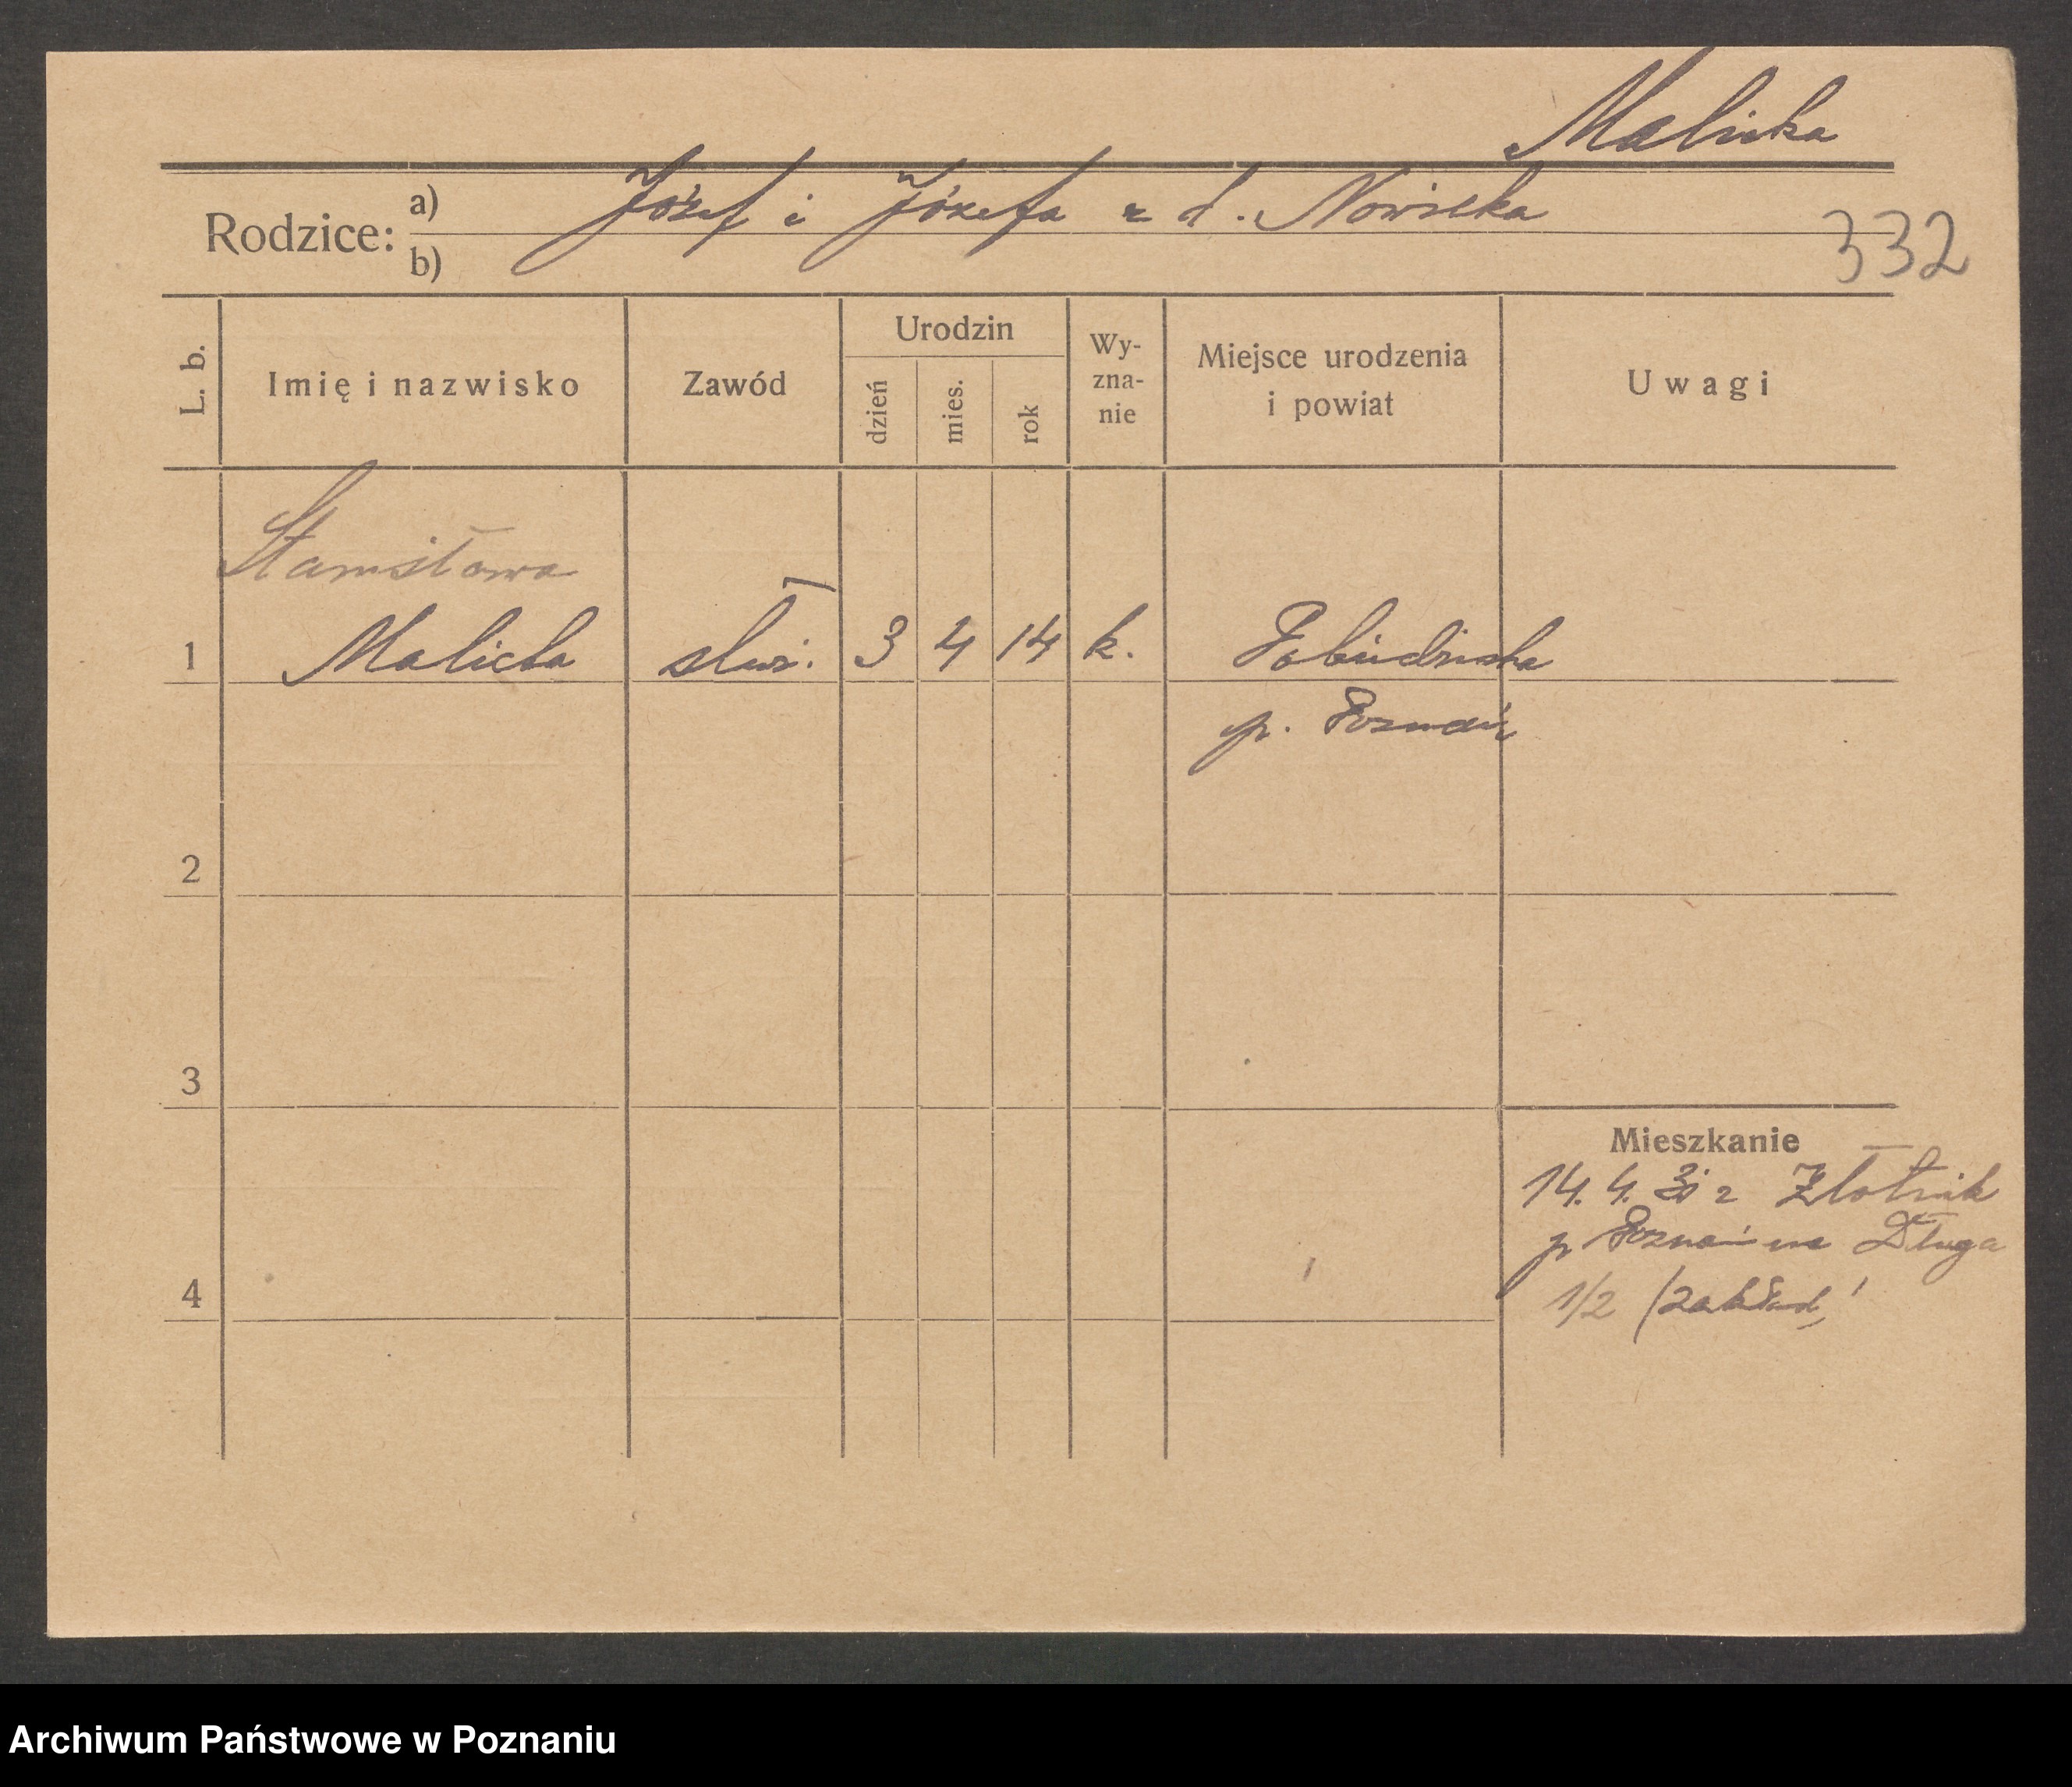 Malicka
Rodzice: a) Józef i Józefa z d. Nowicka
b)
332
L. b.
Imię i nazwisko
Zawód
Urodzin
dzień
mies.
rok
Wy-
zna-
nie
Miejsce urodzenia
i powiat
Uwagi
Stanisława
1 Malicka służ. 3 4 14 k.
p. Poznań
2
3
Mieszkanie
14. 4. z Złotnik
p Poznań na Długa
4
1/2 (zakład)
Archiwum Państwowe w Poznaniu